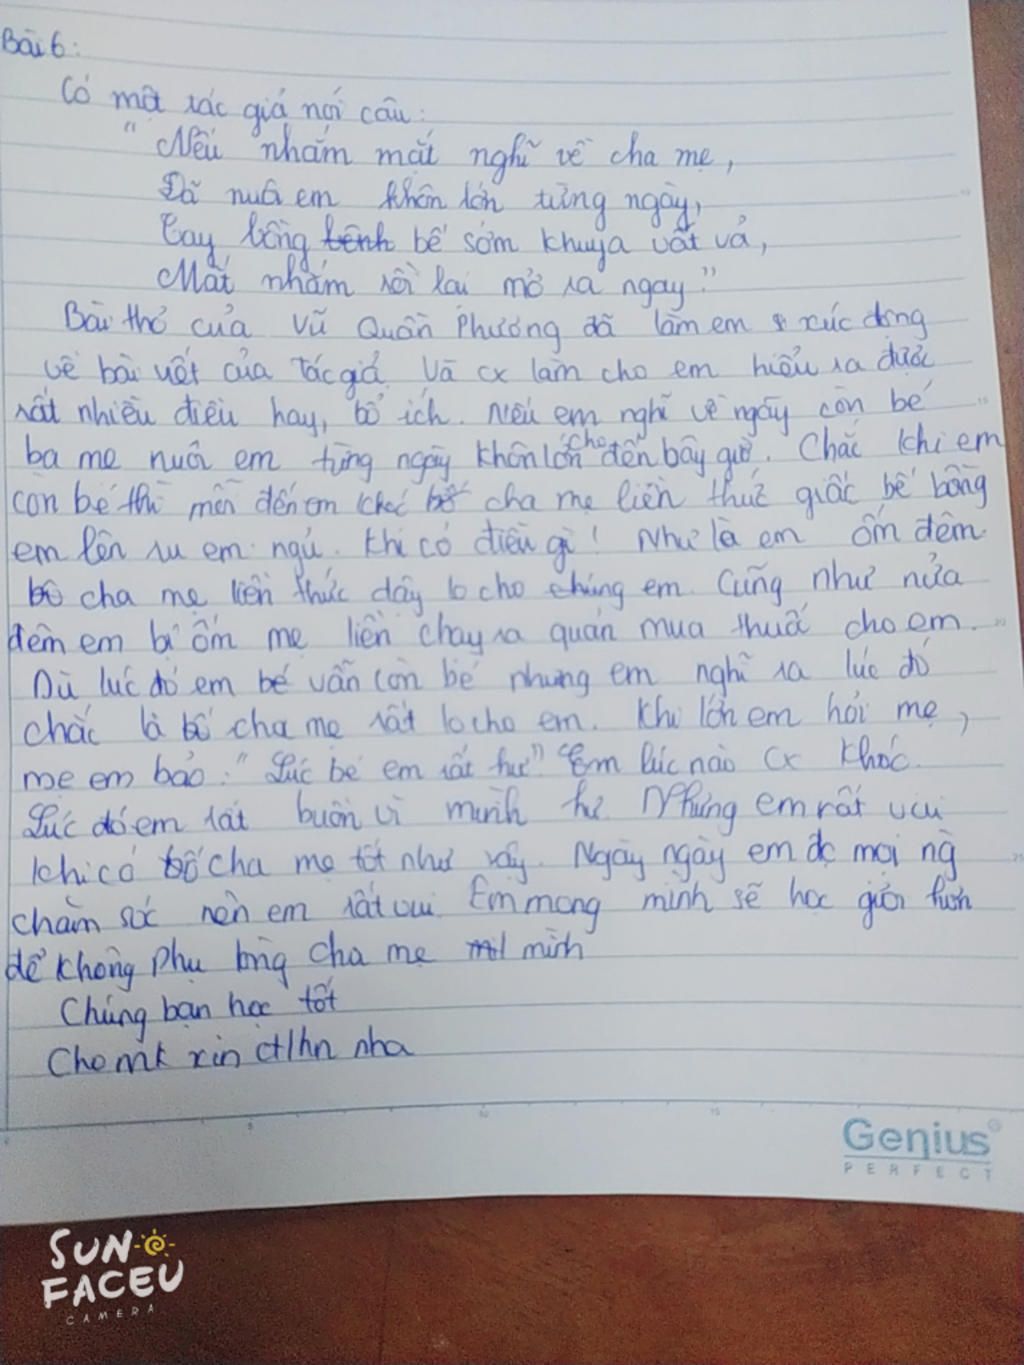 Bài 6:
Có một tác giả nói câu:
"Nếu nhắm mắt nghĩ về cha mẹ,
Đã nuôi em khôn lớn từng ngày,
Tay bồng bênh bế sớm khuya vất vả,
Mắt nhắm rồi lại mở ra ngay."
Bài thơ của Vũ Quần Phương đã làm em xúc động
về bài viết của tác giả. Và cx làm cho em hiểu ra được
rất nhiều điều hay, bổ ích. Nếu em nghĩ về ngày còn bé
ba mẹ nuôi em từng ngày khôn lớn cho đến bây giờ. Chắc khi em
còn bé thì mỗi đến em khóc bố cha mẹ liền thức giấc bế bồng
em lên ru em ngủ. Khi có điều gì! Như là em ốm đêm
bố cha mẹ liền thức dậy lo cho chúng em. Cũng như nửa
đêm em bị ốm mẹ liền chạy ra quán mua thuốc cho em.
Dù lúc đó em bé vẫn còn bé nhưng em nghĩ ra lúc đó
chắc là bố cha mẹ rất lo cho em. Khi lớn em hỏi mẹ,
mẹ em bảo: "Lúc bé em rất hư" Em lúc nào cx khóc.
Lúc đó em rất buồn vì mình hư. Nhưng em rất vui
khi có bố cha mẹ tốt như vậy. Ngày ngày em đc mọi ng
chăm sóc nên em rất vui. Em mong mình sẽ học giỏi hơn
để không phụ lòng cha mẹ mình
Chúng bạn học tốt
Cho mk xin ctlhn nha
Genius
PERFECT
SUN
FACEU
CAMERA